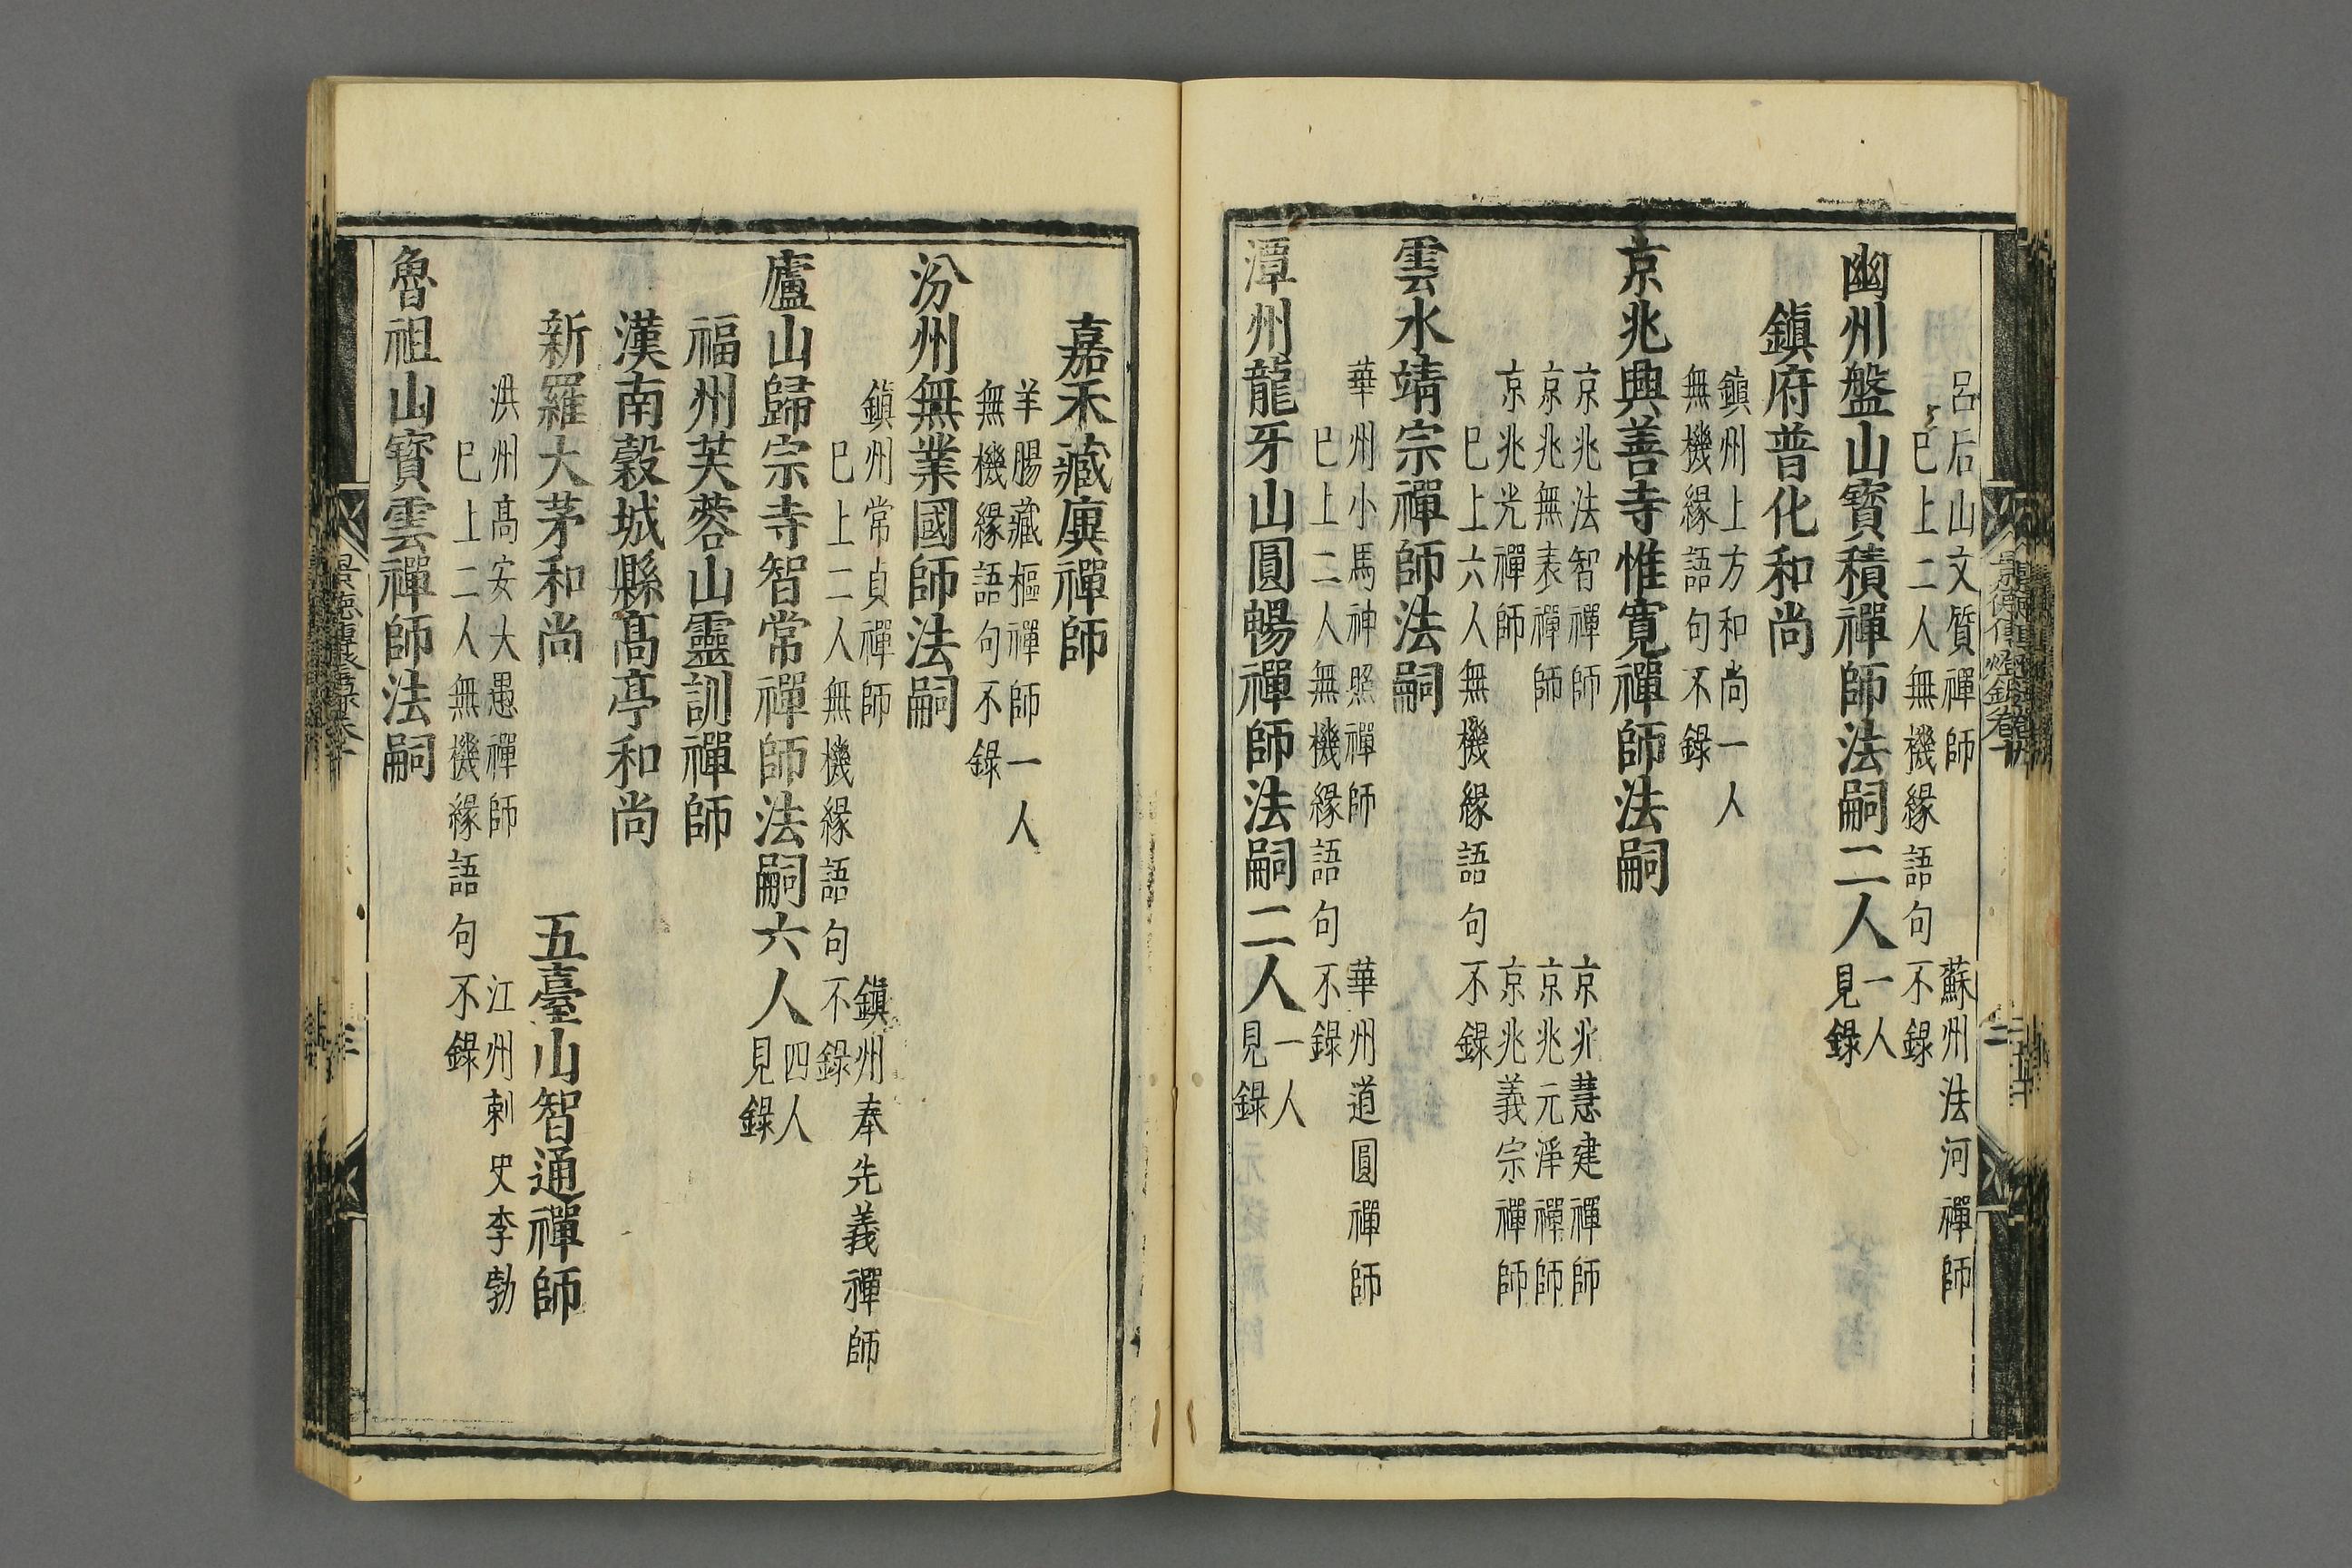 呂后山文質禪師　蘇州法河禪師
巳上二人無機緣語句不錄
幽州盤山寶積禪師法嗣二人一人見錄
鎭府普化和尚
鎭州上方和尚一人
無機緣語句不錄
京兆興善寺惟寬禪師法嗣
京兆法智禪師　京兆慧建禪師
京兆無表禪師　京兆元淨禪師
京兆光禪師　京兆義宗禪師
巳上六人無機緣語句不錄
雲水靖宗禪師法嗣
華州小馬神照禪師　華州道圓禪師
巳上二人無機緣語句不錄
潭州龍牙山圓暢禪師法嗣二人一人見錄
嘉禾藏廙禪師
羊腸藏樞禪師一人
無機緣語句不錄
汾州無業國師法嗣
鎭州常貞禪師　鎭州奉先義禪師
巳上二人無機緣語句不錄
廬山歸宗寺智常禪師法嗣六人四人見錄
福州芙蓉山靈訓禪師
漢南穀城縣髙亭和尚
新羅大茅和尚　五臺山智通禪師
洪州髙安大愚禪師　江州刺史李勃
巳上二人無機緣語句不錄
魯祖山寶雲禪師法嗣